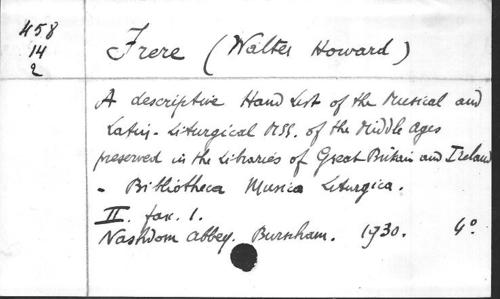 458
14
2
Frere (Walter Howard)
A descriptive Hand List of the Musical and
Latin-Liturgical MSS. of the Middle Ages
preserved in the Libraries of Great Britain and Ireland
- Bibliotheca Musica Liturgica.
II. fax. 1.
Nashdom Abbey. Burnham. 1930. 4°